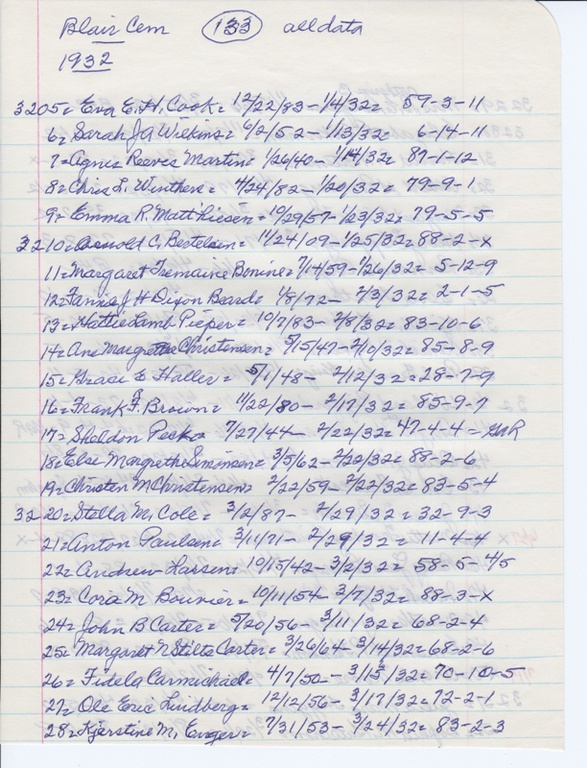 Blair Cem 133 all data
1932
3205= Eva E.H. Cook= 12/22/83-1/4/32= 59-3-11
6= Sarah J A Wilkins= 6/2/52-1/13/32= 6-14-11
7= Agnes Reeves Martin= 1/26/40-1/14/32= 87-1-12
8= Chris L. Winther= 4/24/82-1/20/32= 79-9-1
9= Emma R. Matthiesen= 10/29/57-1/23/32= 79-5-5
3210= Arnold C. Bertelsen= 11/24/09-1/25/32= 88-2-x
11= Margaret Tremaine Bonine= 7/14/59-1/26/32= 5-12-9
12= Fannie J H Dixon Beard= 1/8/72- 2/3/32= 2-1-5
13= Hattie Lamb Pieper= 10/7/83- 2/8/32= 83-10-6
14= Ane Margretha Christensen= 5/15/47-2/10/32= 85-8-9
15= Grace E Haller= 5/1/48- 2/12/32= 28-7-9
16= Frank F. Brown= 11/22/80- 2/17/32= 85-9-7
17= Sheldon 7/27/44- 2/22/32= 47-4-4=
18= Else Margrethe Simonsen= 3/5/62-2/22/32= 88-2-6
19= Christen M Christensen= 2/22/59-2/22/32= 83-5-4
3220= Stella M. Cole= 3/2/87- 2/29/32= 32-9-3
21= Anton Paulsen= 3/11/71- 2/29/32= 11-4-4
22= Andrew Larsen= 10/15/42-3/2/32= 58-5-4/5
23= Cora M. = 10/11/54- 3/7/32= 88-3-x
24= John B Carter= 5/20/56- 3/11/32= 68-2-4
25= Margaret N Stilts Carter= 3/26/64-3/14/32= 68-2-6
26= Fidela Carmichael= 4/7/50- 3/15/32= 70-10-5
27= Ole Eric Lindberg= 12/12/56- 3/17/32= 72-2-1
28= Kjerstine M. = 7/31/53- 3/24/32= 83-2-3